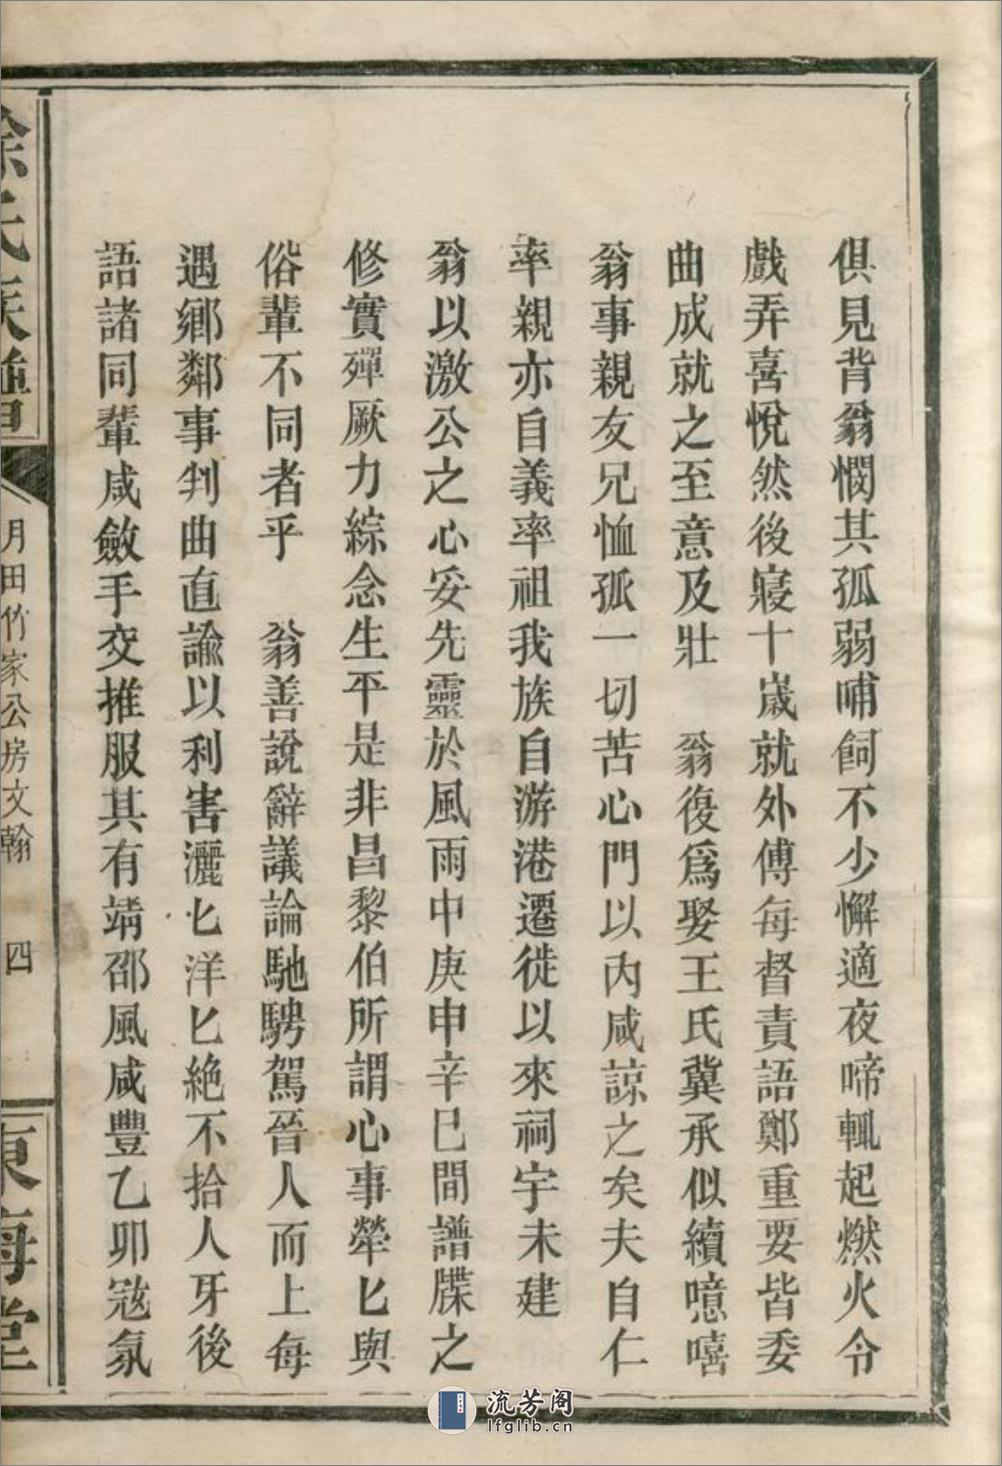 俱見背翁憫其孤弱哺飼不少懈適夜啼輒起燃火令
戲弄喜悅然後寢十歲就外傅每督責語鄭重要皆委
曲成就之至意及壯　翁復爲娶王氏冀承似續噫嘻
翁事親友兄恤孤一切苦心門以內咸諒之矣夫自仁
率親亦自義率祖我族自游港遷徙以來祠宇未建
翁以激公之心妥先靈於風雨中庚申辛巳間譜牒之
修實殫厥力綜念生平是非昌黎伯所謂心事犖匕與
俗輩不同者乎　翁善說辭議論馳騁駕晉人而上每
遇鄉鄰事判曲直諭以利害灑匕洋匕絶不拾人牙後
語諸同輩咸斂手交推服其有靖邵風咸豐乙卯寇氛
徐氏族譜
月田竹家公房文翰
四
東海堂
流芳阁
lfglib.cn